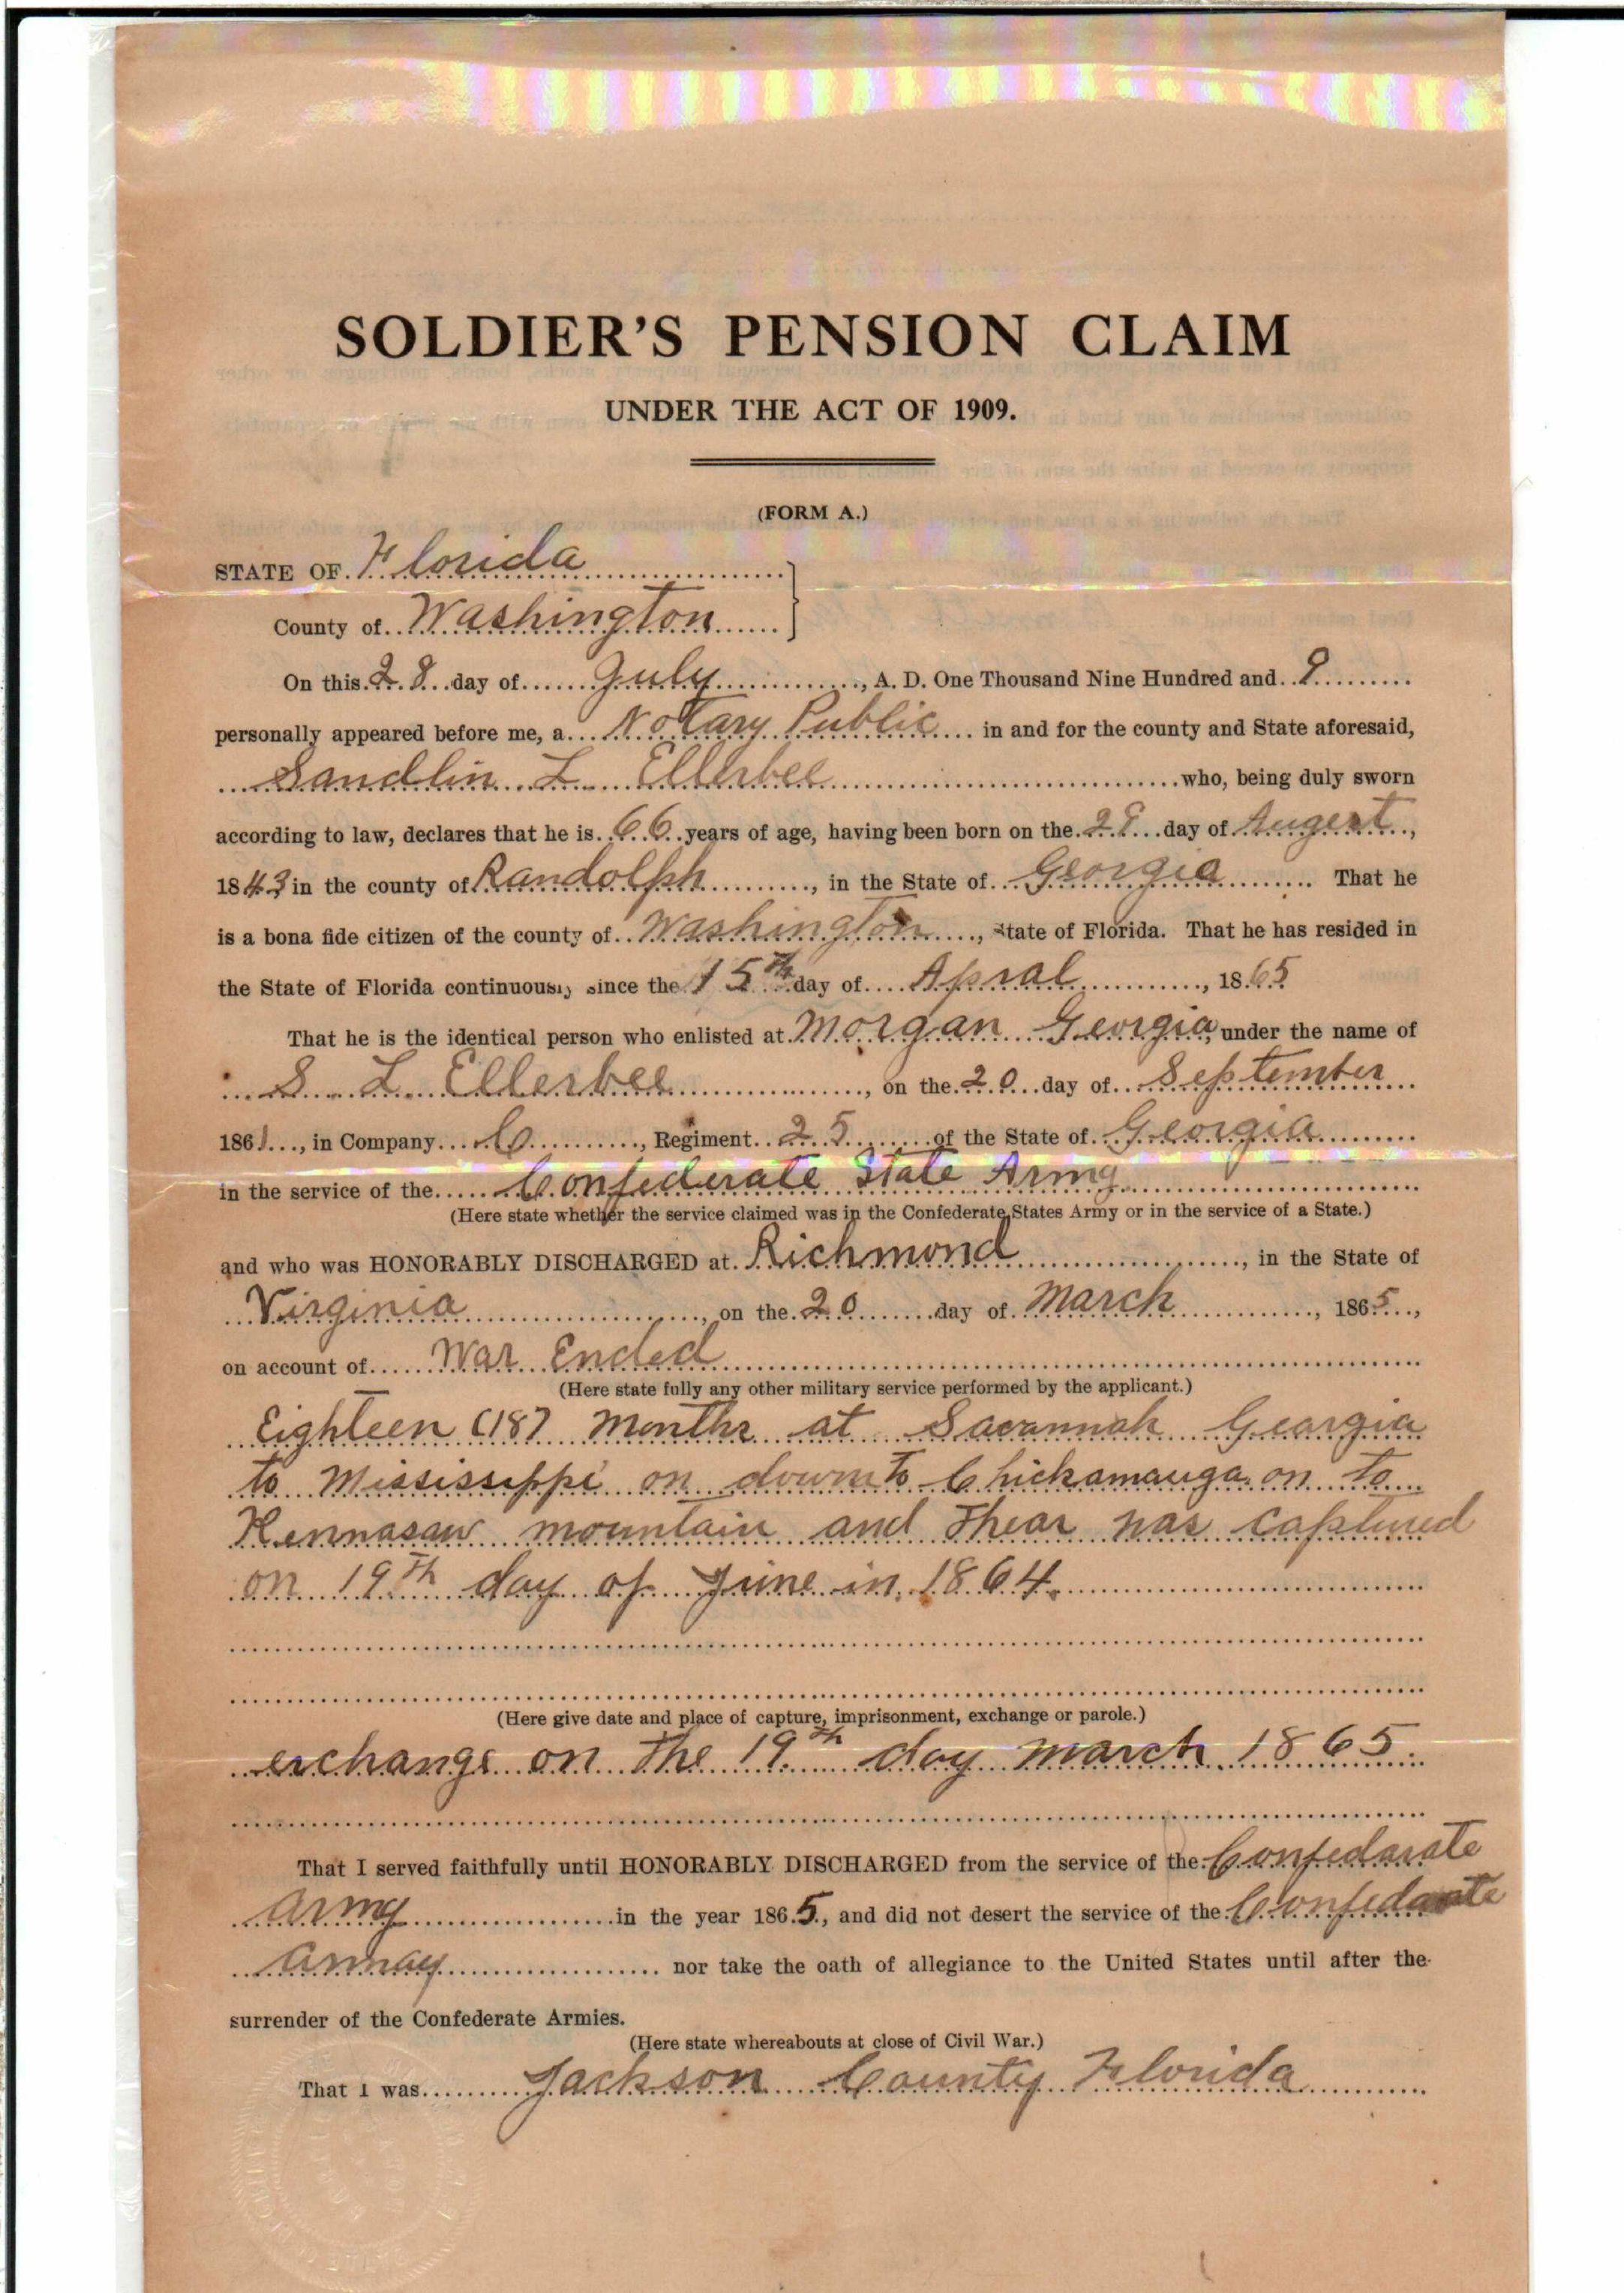 SOLDIER'S PENSION CLAIM
UNDER THE ACT OF 1909.
(FORM A.)
STATE OF Florida
County of Washington
On this 28 day of July, A. D. One Thousand Nine Hundred and 9
personally appeared before me, a Notary Public in and for the county and State aforesaid,
Sandlin L Ellerbee who, being duly sworn
according to law, declares that he is 66 years of age, having been born on the 28 day of Augest,
1843 in the county of Randolph, in the State of Georgia That he
is a bona fide citizen of the county of Washington, State of Florida. That he has resided in
the State of Florida continuously since the 15th day of Apral, 1865
That he is the identical person who enlisted at Morgan Georgia, under the name of
S. L. Ellerbee, on the 20 day of September
1861, in Company C, Regiment 25 of the State of Georgia
in the service of the Confederate State Army
(Here state whether the service claimed was in the Confederate States Army or in the service of a State.)
and who was HONORABLY DISCHARGED at Richmond, in the State of
Virginia, on the 20 day of March, 1865,
on account of War Ended
(Here state fully any other military service performed by the applicant.)
Eighteen (18) Months at Savannah Georgia
to Mississippi on down to Chickamauga on to
Kennasaw mountain and thear was captured
on 19th day of June in 1864.
(Here give date and place of capture, imprisonment, exchange or parole.)
exchange on the 19th day march 1865.
That I served faithfully until HONORABLY DISCHARGED from the service of the Confedarate
army in the year 1865, and did not desert the service of the Confedarate
armay nor take the oath of allegiance to the United States until after the
surrender of the Confederate Armies.
(Here state whereabouts at close of Civil War.)
That I was Jackson County Florida